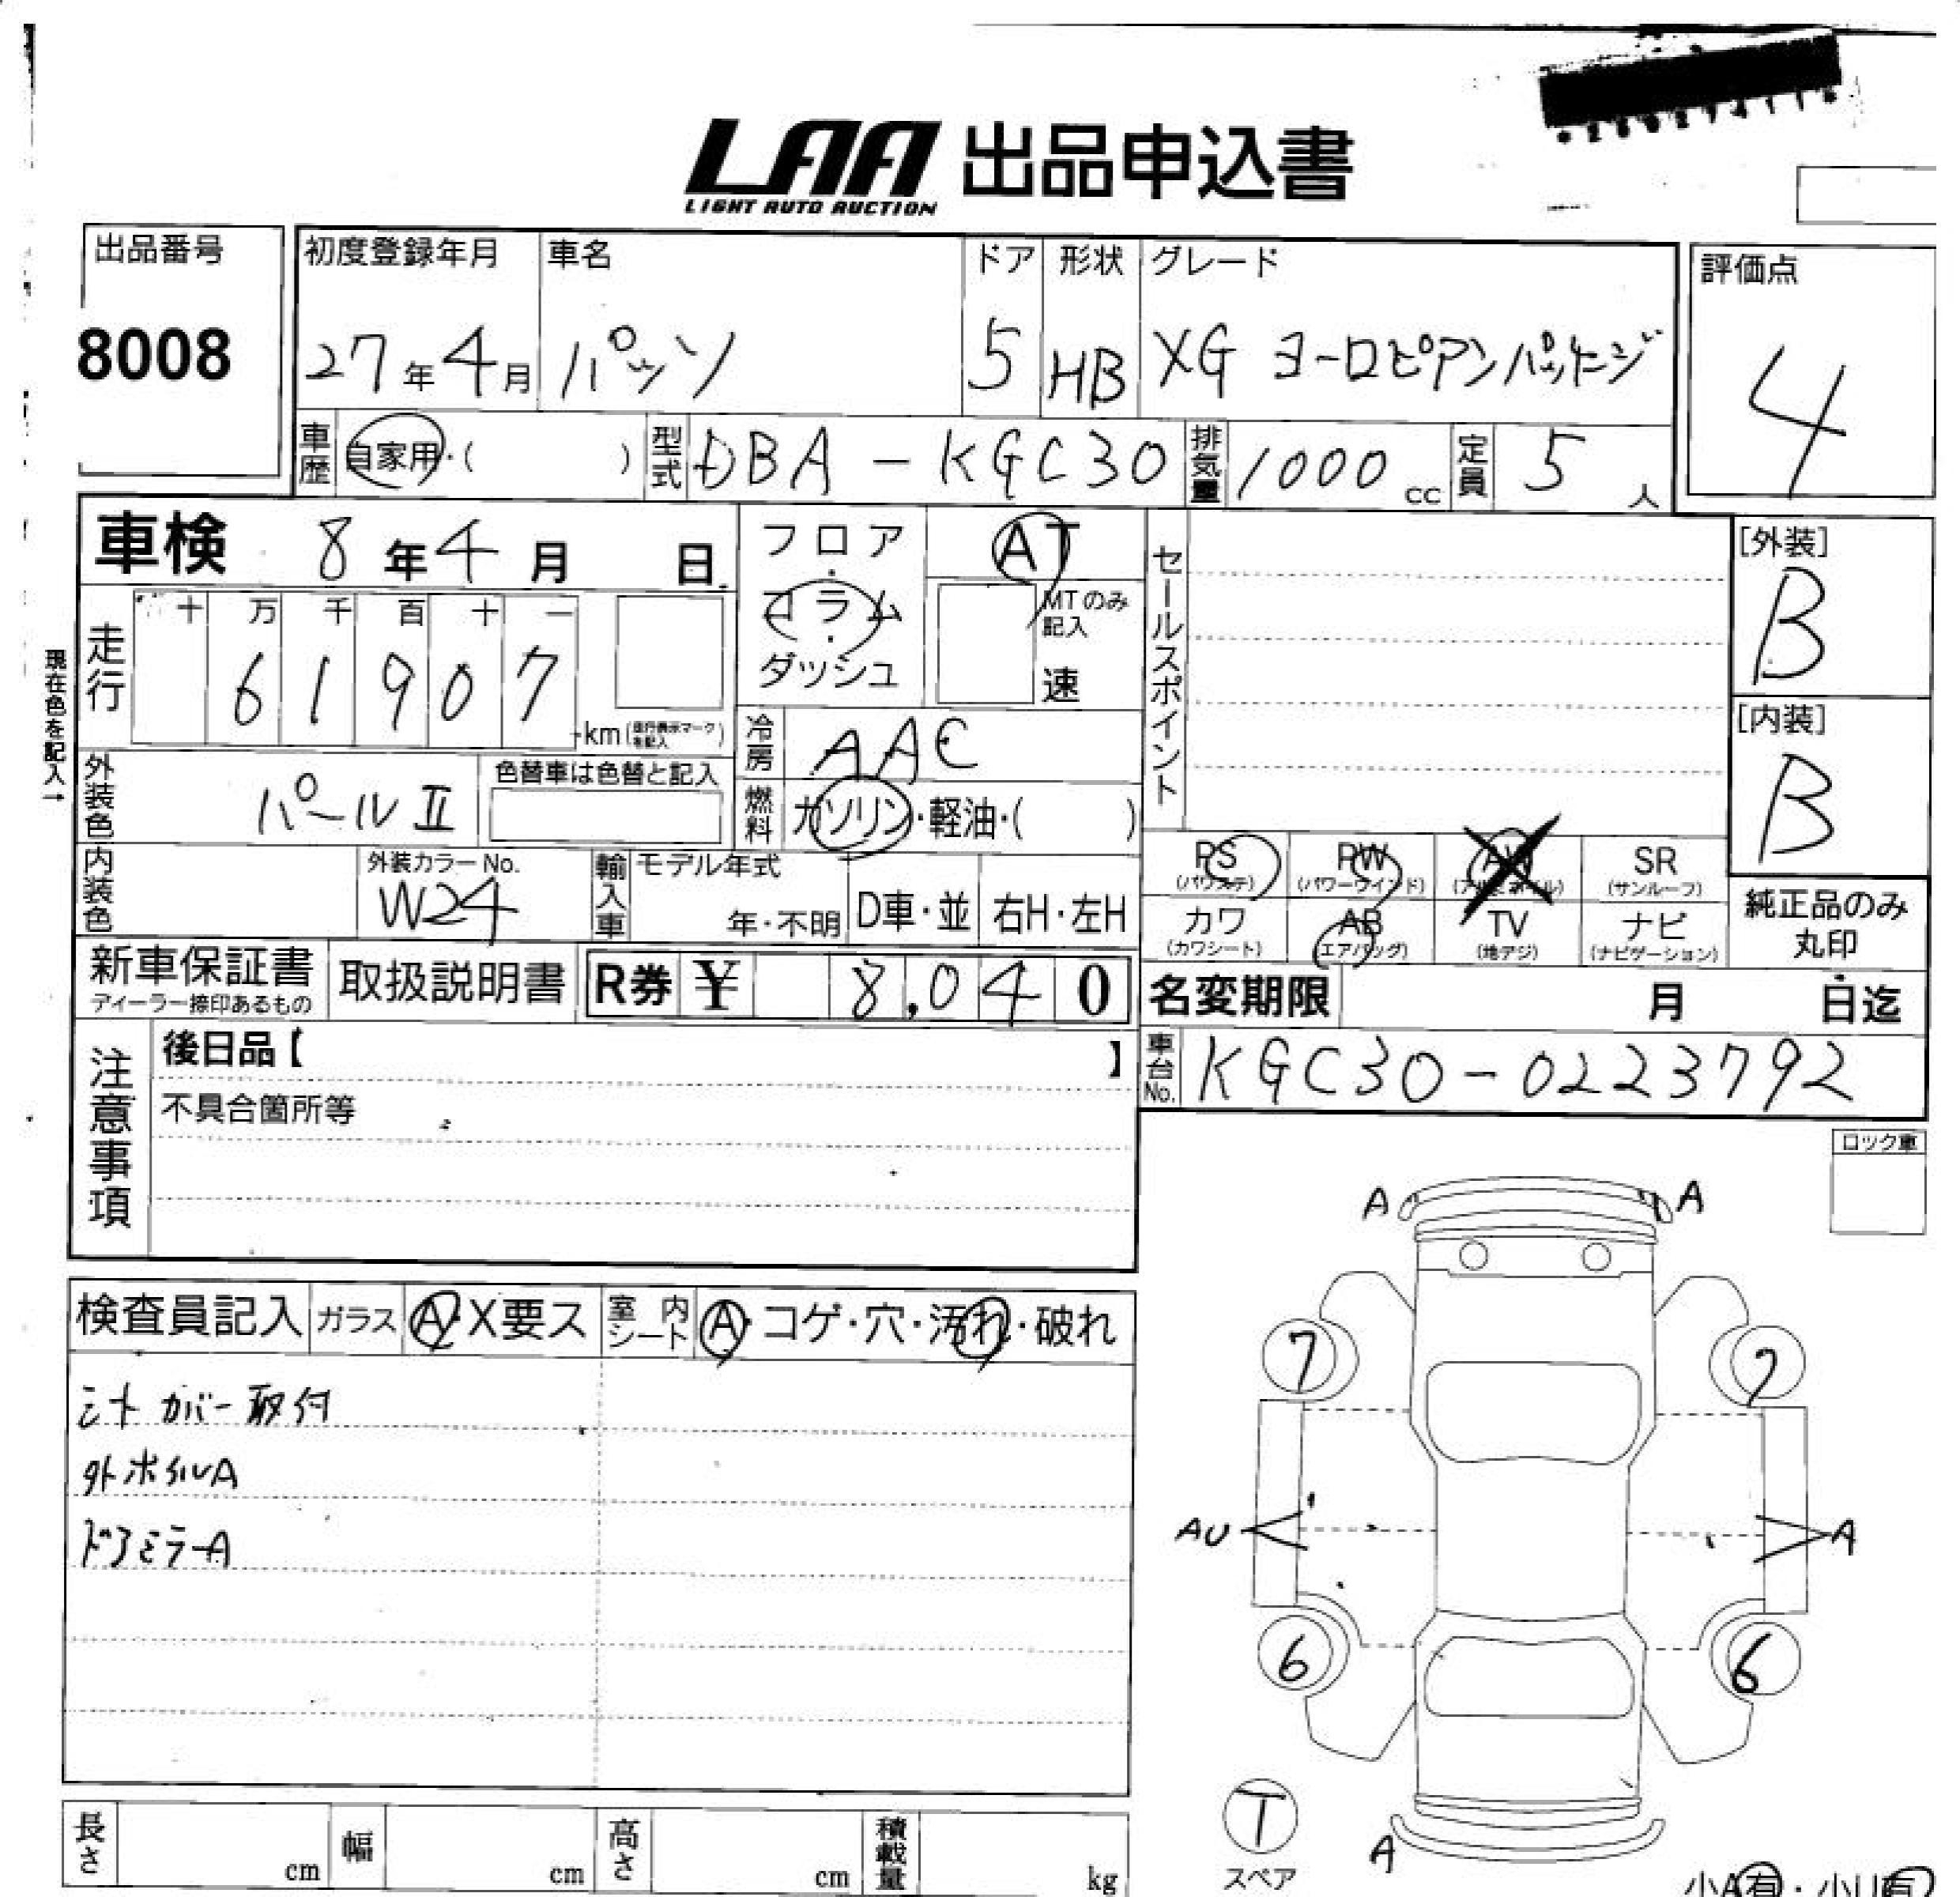 LAA 出品申込書
LIGHT AUTO AUCTION
出品番号 初度登録年月 車名 ドア 形状 グレード 評価点
8008 27年4月 パッソ 5 HB XG ヨーロピアンパッケージ 4
車歴 自家用・( ) 型式 DBA-KGC30 排気量 1000cc 定員 5人
車検 8年4月 日 フロア・コラム・ダッシュ AT セールスポイント [外装]
B
MTのみ記入 速
現在色を記入→
走行 十 万 千 百 十 一
6 1 9 0 7 km
冷房 AAC [内装]
B
外装色 パールⅡ 色替車は色替と記入 燃料 ガソリン・軽油・( )
内装色 外装カラーNo. W24 輸入車 モデル年式 年・不明 D車・並 右H・左H
PS (パワステ) PW (パワーウインド) AW (アルミホイル) SR (サンルーフ)
カワ (カワシート) AB (エアバッグ) TV (地デジ) ナビ (ナビゲーション) 純正品のみ丸印
新車保証書 取扱説明書 R券 ¥ 8,040 名変期限 月 日迄
ディーラー捺印あるもの
注意事項 後日品【 】 車台No. KGC30-0223792
不具合箇所等
ロック車
A A
検査員記入 ガラス A・X要ス 室内シート A・コゲ・穴・汚れ・破れ
7 7
シートカバー取付
外ホイルA
ドアミラーA
AU A
6 6
T
スペア
A
長さ cm 幅 cm 高さ cm 積載量 kg
小A有・小U有